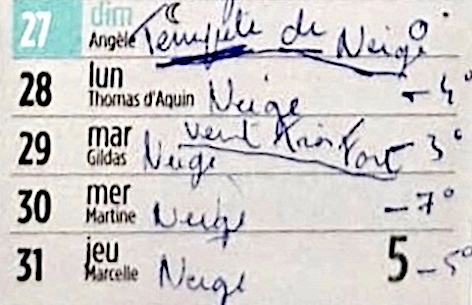 27 dim Angèle Tempête de Neige 0°
28 lun Thomas d'Aquin Neige -4°
29 mar Gildas Neige vent très Fort -3°
30 mer Martine Neige -7°
31 jeu Marcelle Neige 5 -5°